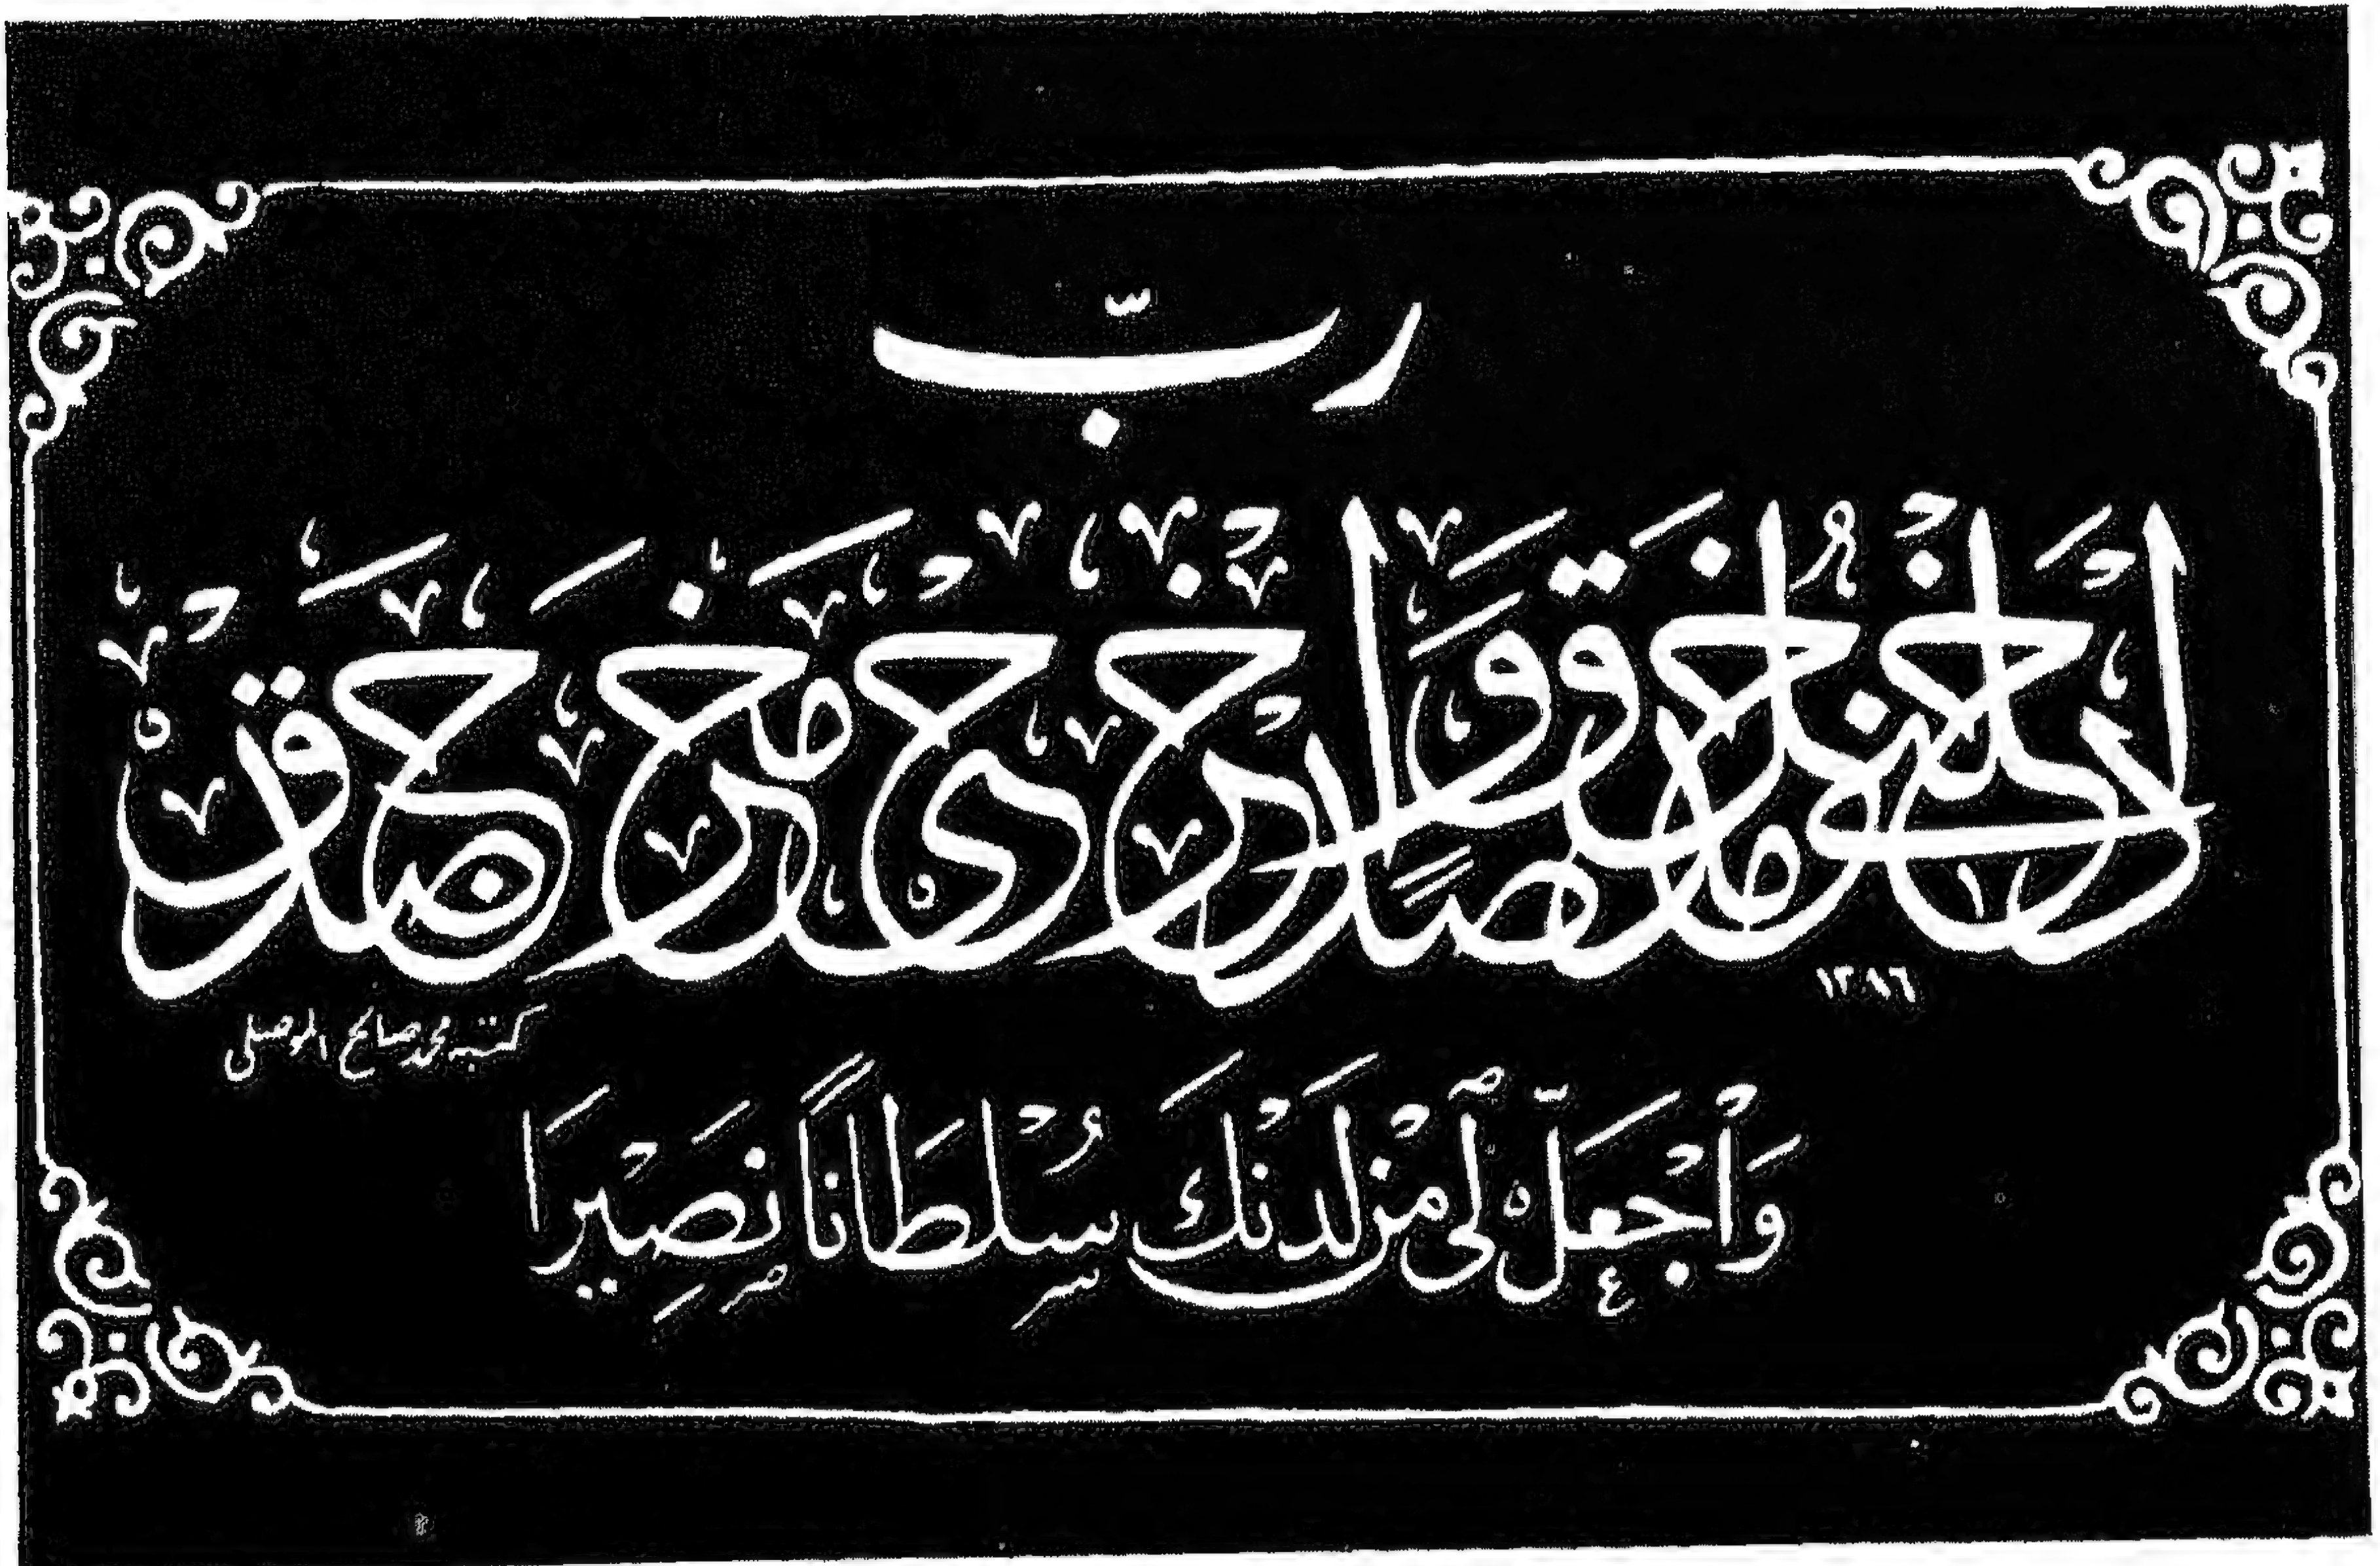 رَبّ
أَدْخِلْنِي مُدْخَلَ صِدْقٍ وَأَخْرِجْنِي مُخْرَجَ صِدْقٍ
١٣٨٦
كتبه محمد صالح الموصلي
وَاْجْعَلْ لّٓي مِنْ لَدُنْكَ سُلْطَانًا نَصِيْرَا